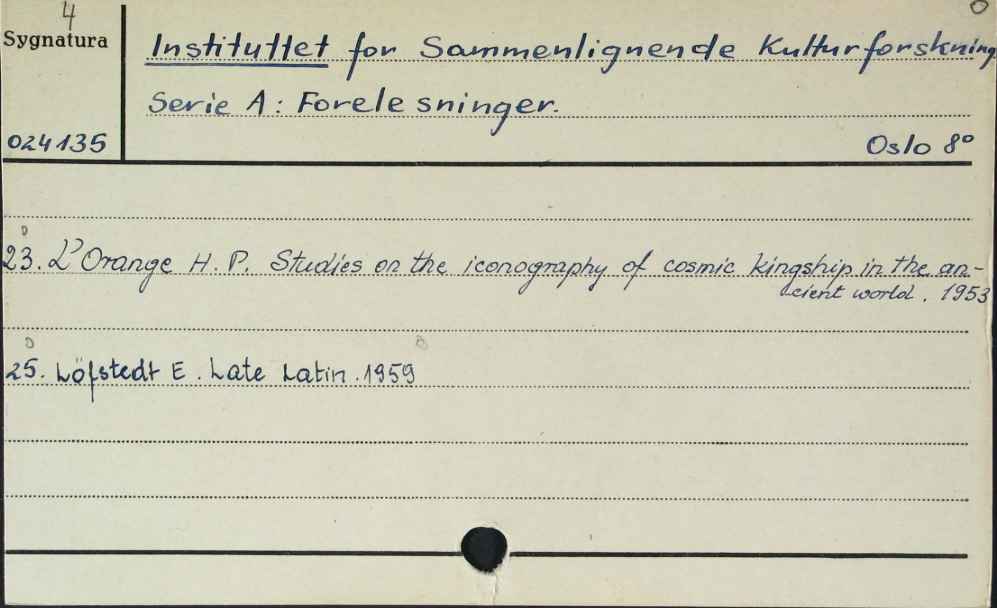 4
Sygnatura
Instituttet for Sammenlignende Kulturforskning
Serie A: Forelesninger.
024135
Oslo 8°
23. L'Orange H. P. Studies on the iconography of cosmic kingship in the an-
cient world. 1953
25. Löfstedt E. Late Latin. 1959